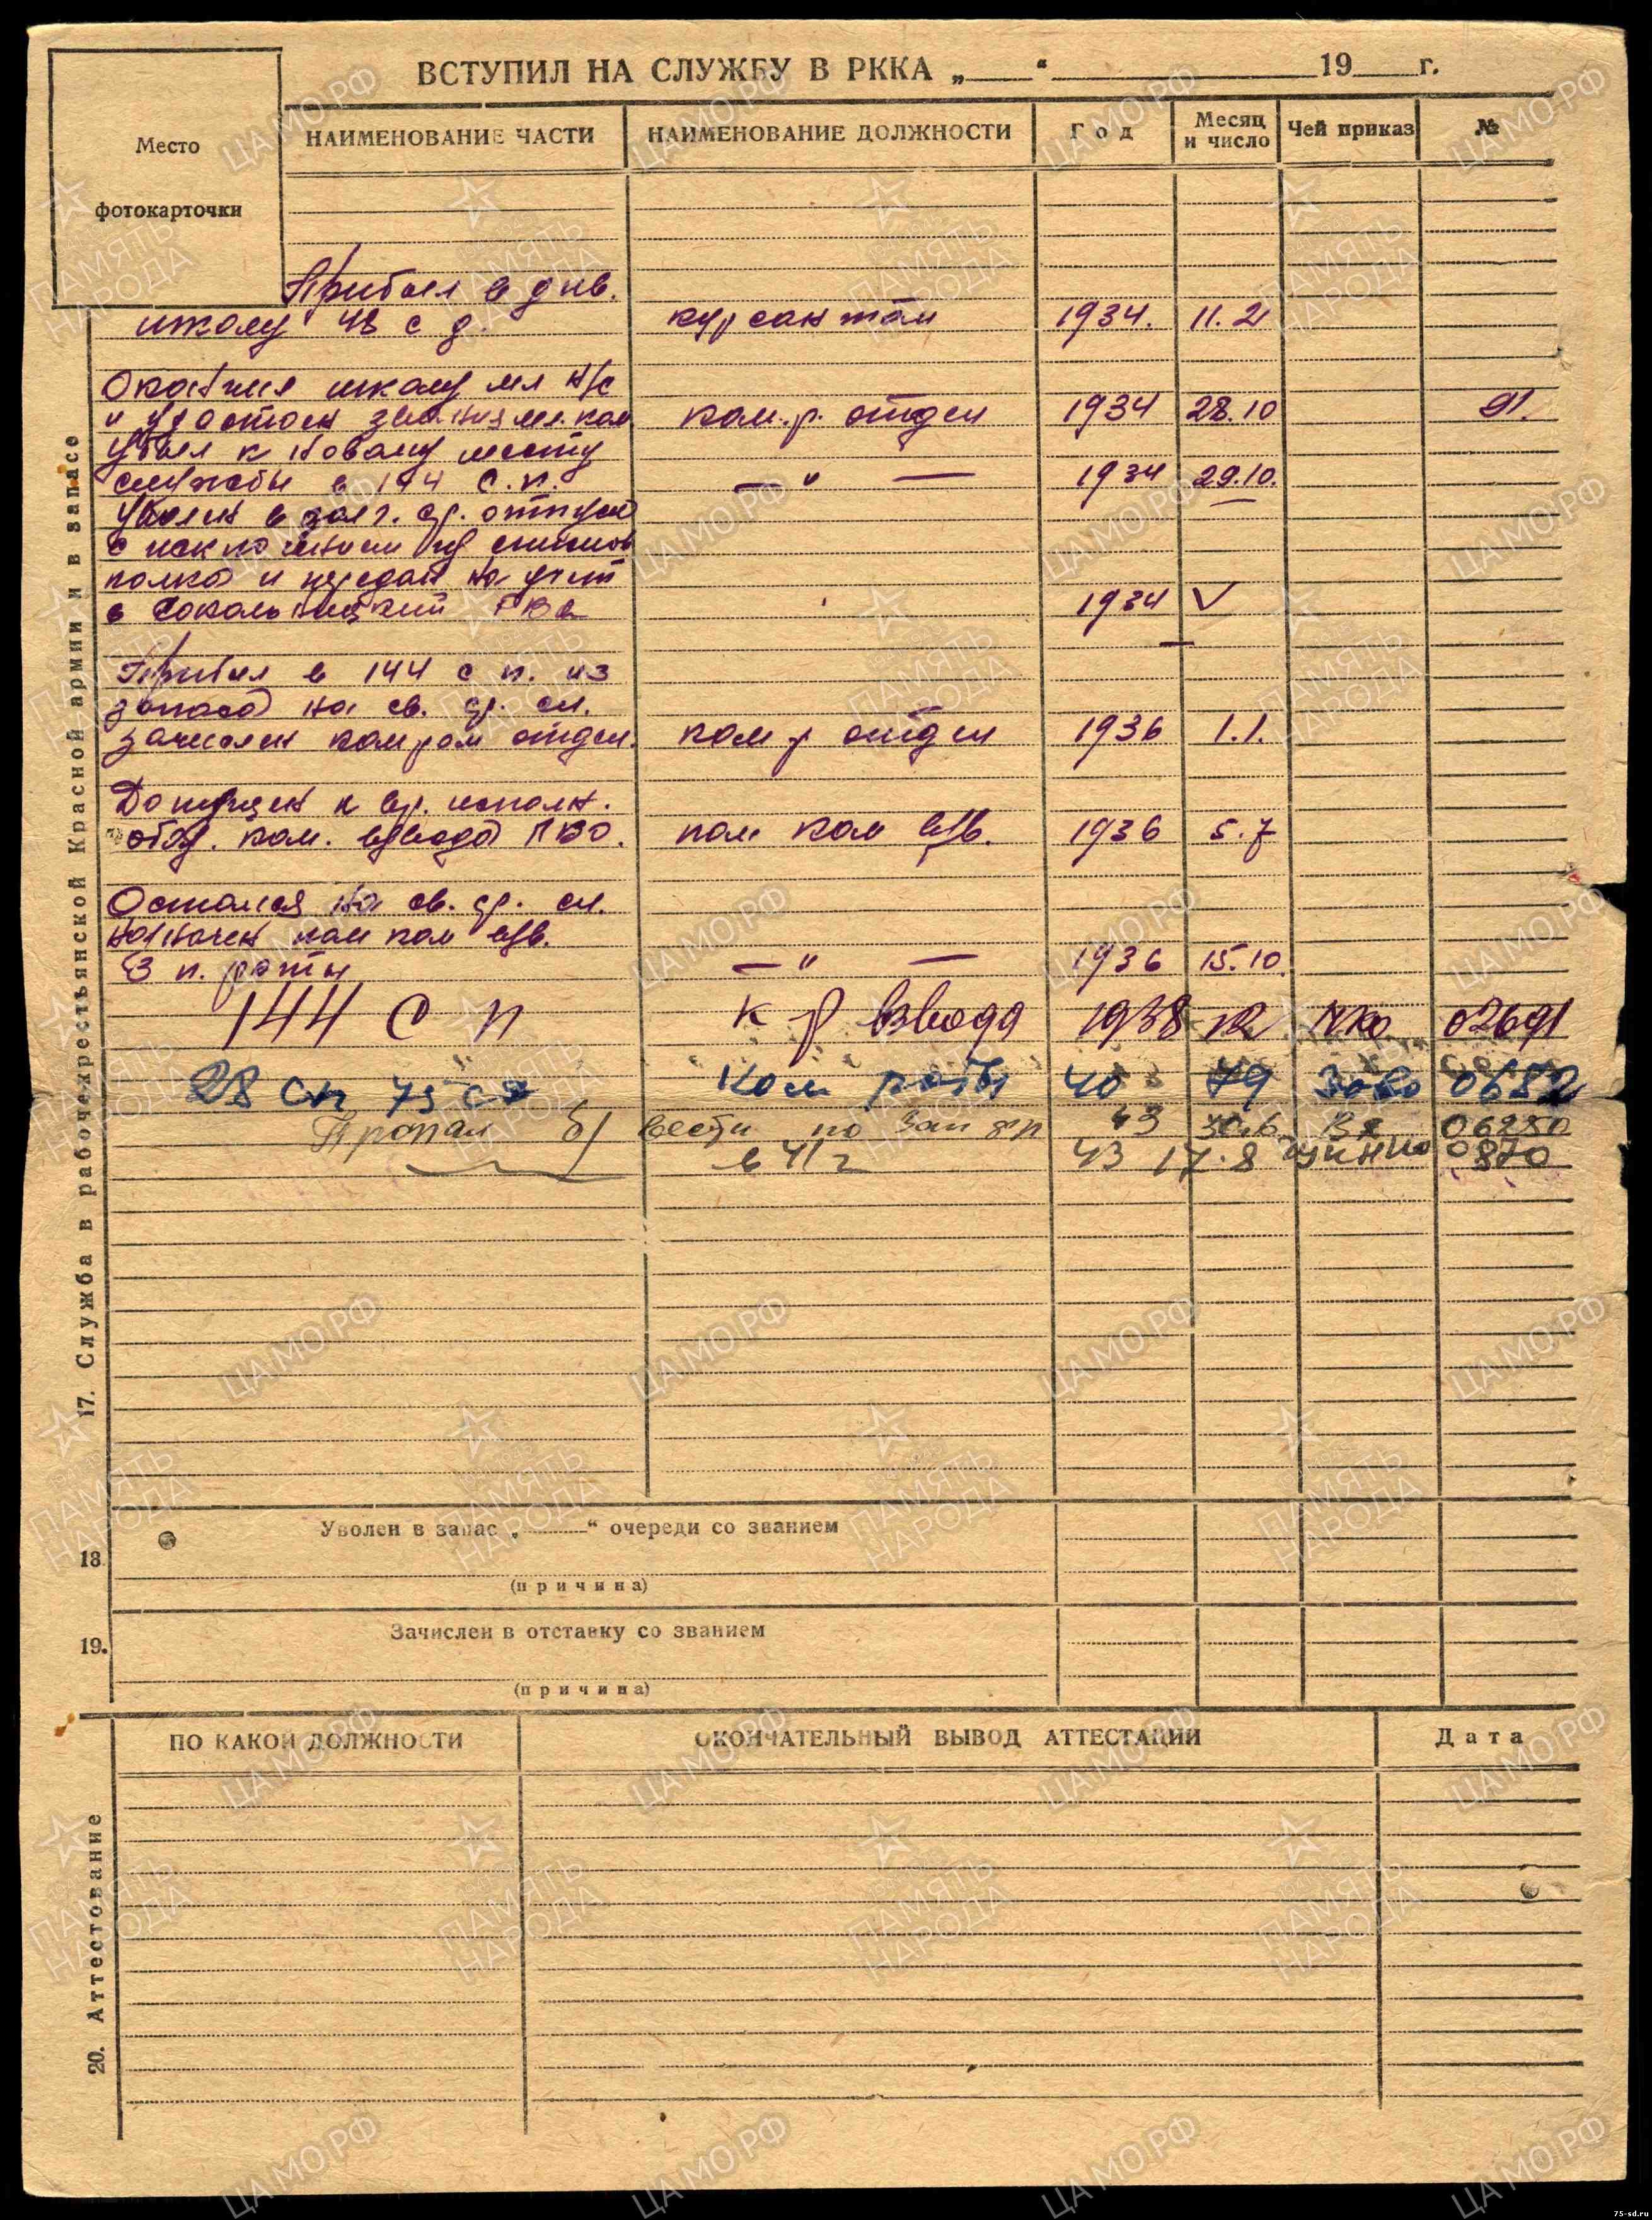 ВСТУПИЛ НА СЛУЖБУ В РККА „ “ 19 г.
Место
фотокарточки
НАИМЕНОВАНИЕ ЧАСТИ НАИМЕНОВАНИЕ ДОЛЖНОСТИ Год Месяц и число Чей приказ №
Прибыл в див.
школу 48 с д. курсантом 1934. 11.2
школу мл н/с
ком.р. отдел 1934 28.10 91.
Убыл к новому месту
службы в 144 с.п. — " — 1934 29.10.
Уволен в долг. ср. отпуск
с исключением из списков
полка и передан на учет
в Сокольницкий РВК 1934 V
Прибыл в 144 с п. из
запаса на св. ср. сл.
зачислен ком ром отдел. ком р отдел 1936 1.1.
Допущен к вр. исполн.
обяз. ком. взвода ПВО. пом ком взв. 1936 5.7
Остался на св. ср. сл.
назначен пом ком взв.
3 п. роты — " — 1936 15.10.
144 с п к р взвода 1938 12 НКО 02691
28 сп 75 сд Ком роты 40 ЗОВО 0682
Пропал б/вести по Зап фр 43 30.6 06280
в 41 г 43 17.8 0870
17. Служба в рабоче-крестьянской Красной армии и в запасе
18. Уволен в запас „ “ очереди со званием
(причина)
19. Зачислен в отставку со званием
(причина)
ПО КАКОЙ ДОЛЖНОСТИ ОКОНЧАТЕЛЬНЫЙ ВЫВОД АТТЕСТАЦИИ Дата
20. Аттестование
ЦАМО.РФ
ПАМЯТЬ НАРОДА
75-sd.ru